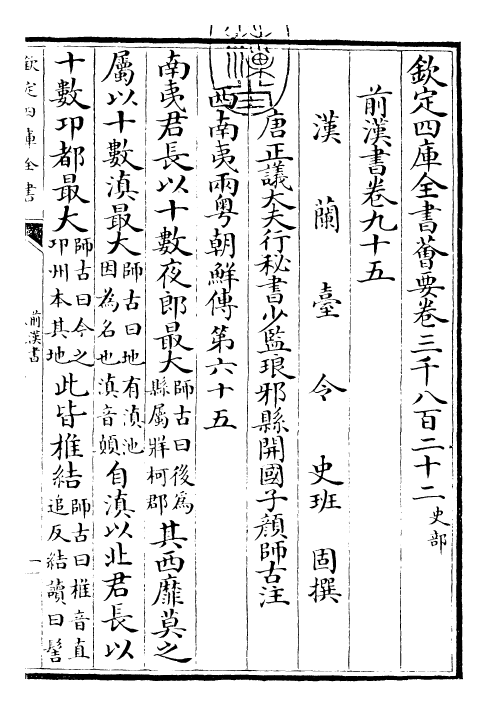 欽定四庫全書薈要卷三千八百二十二 史部
前漢書卷九十五
漢蘭臺令史班固撰
唐正議大夫行秘書少監琅邪縣開國子顏師古注
西南夷兩粤朝鮮傳第六十五
南夷君長以十數夜郎最大師古曰後為縣屬牂柯郡其西靡莫之
屬以十數滇最大師古曰地有滇池因為名也滇音顛自滇以北君長以
十數卭都最大師古曰今之卭州本其地此皆椎結師古曰椎音直追反結讀曰髻
欽定四庫全書
前漢書
一